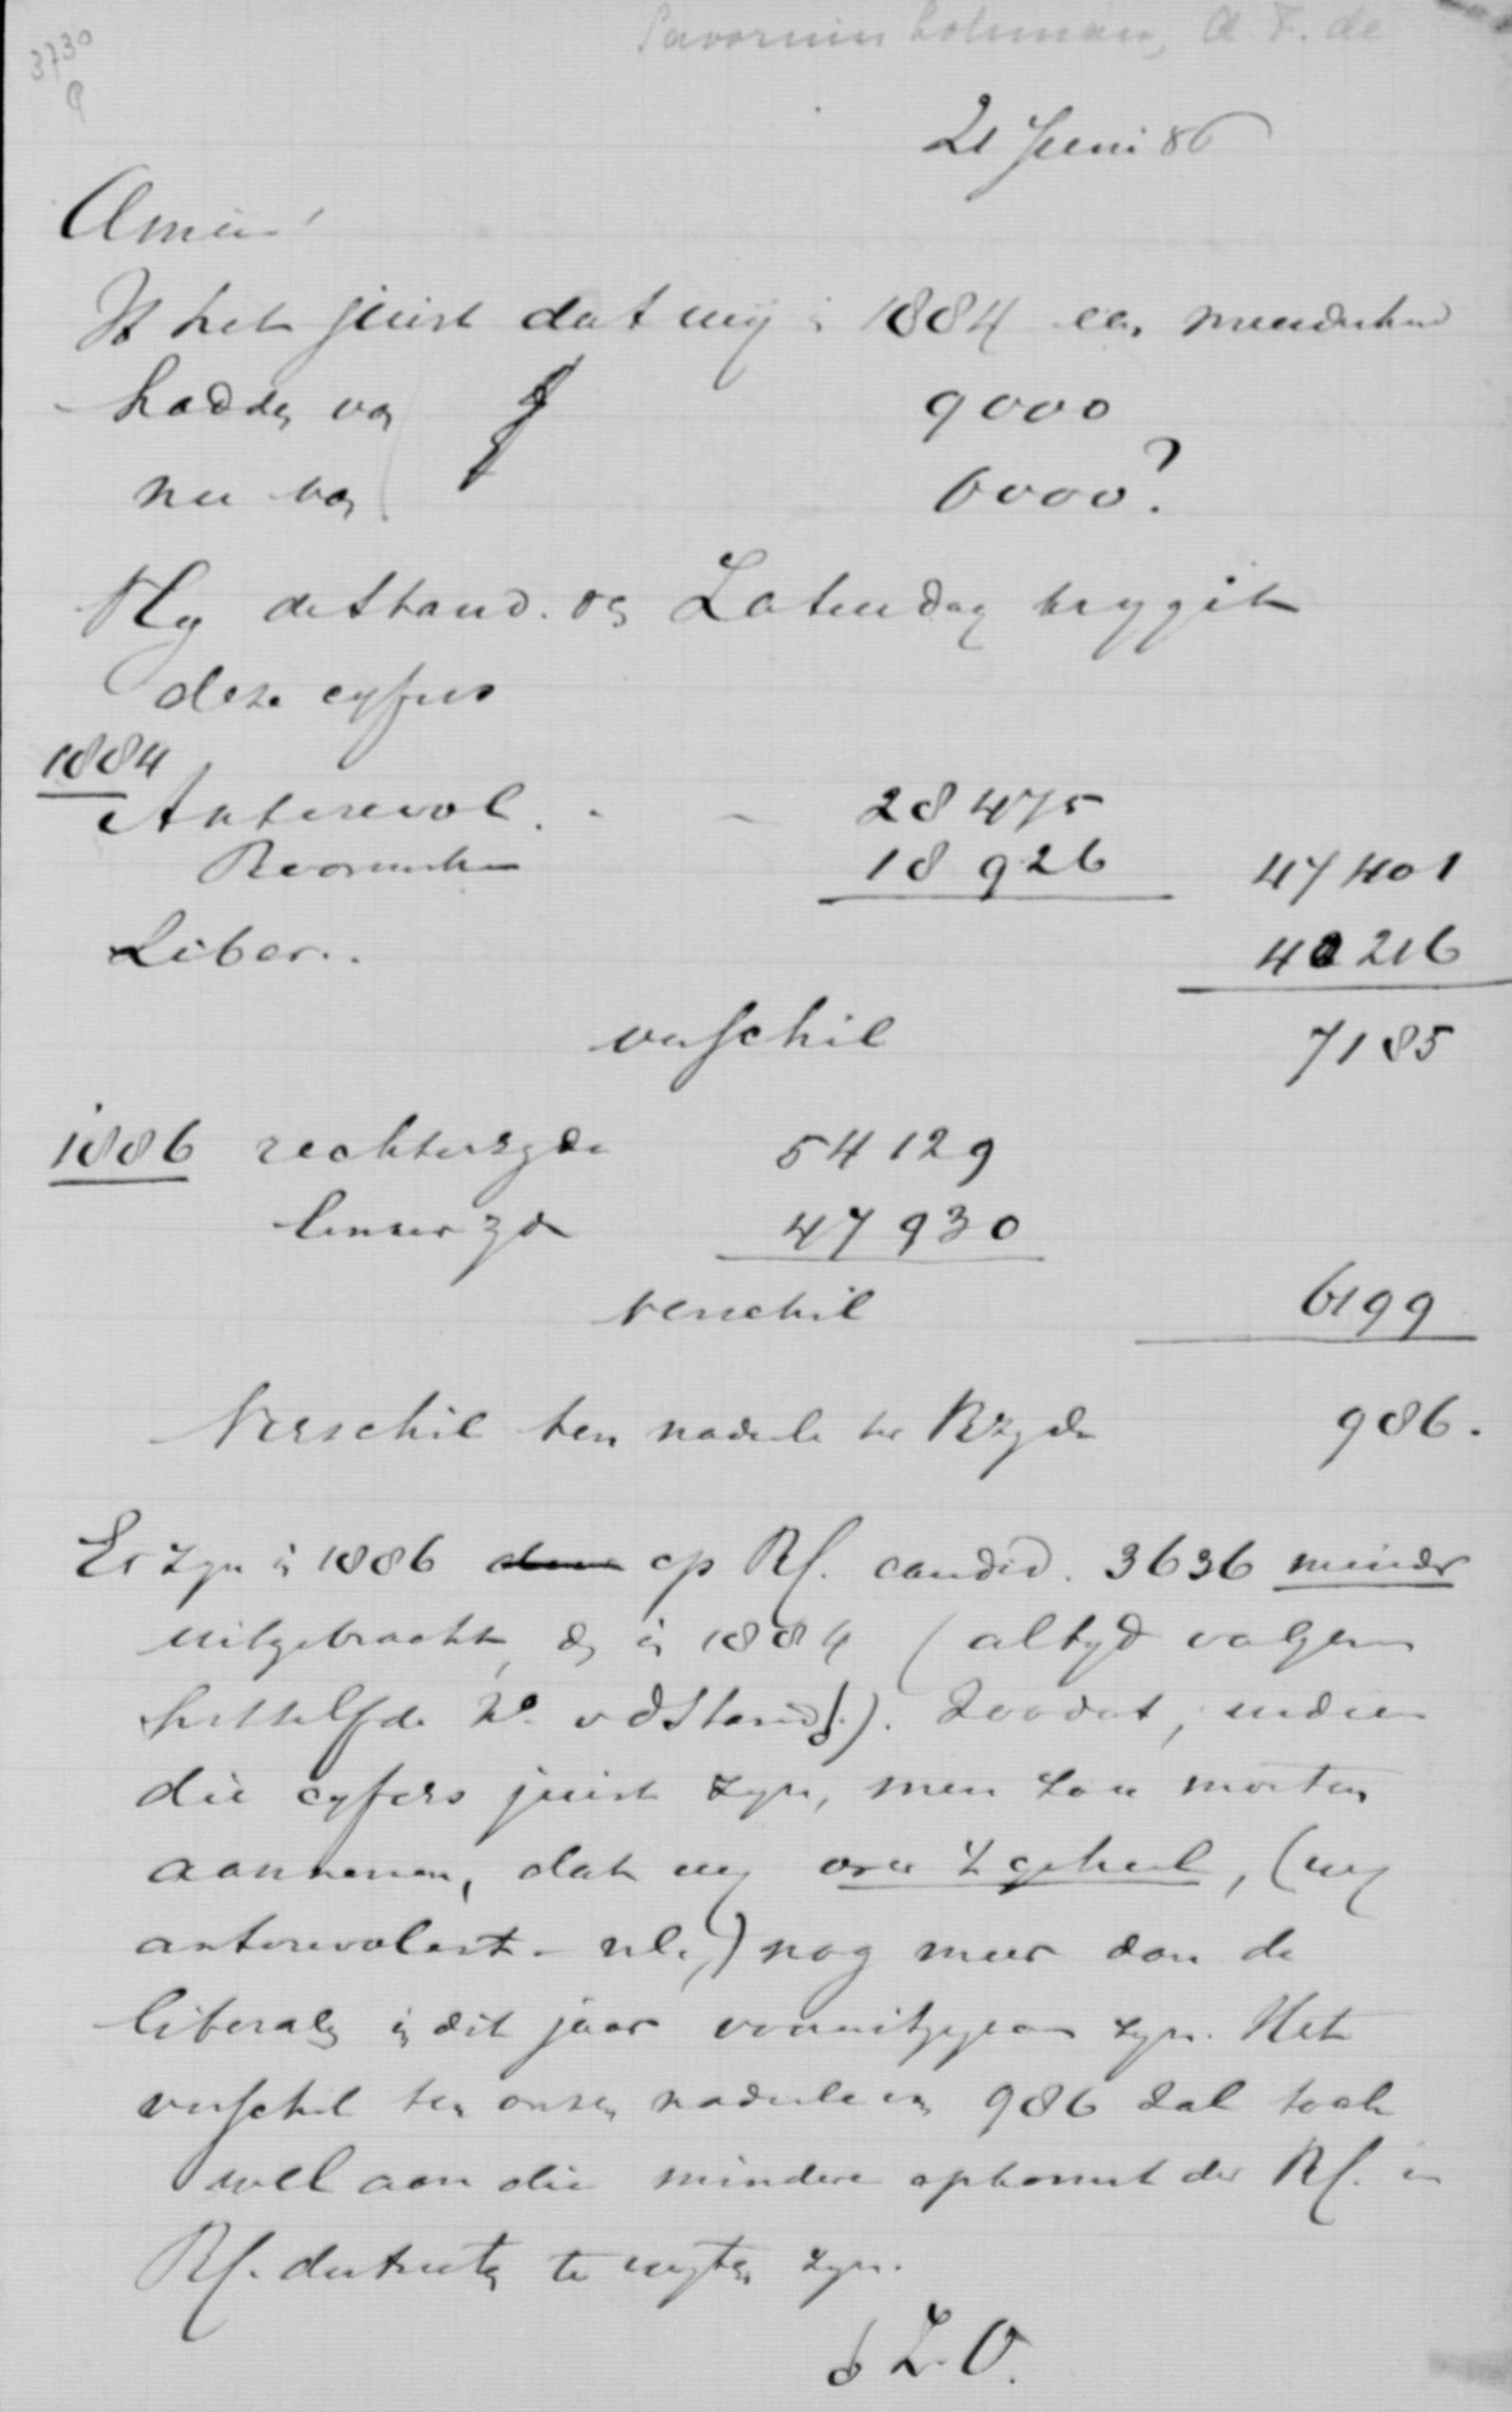 Savornin Lohman, A F. de
3730
21 Juni 86
Amice!
Is het juist dat wij in 1884 een meerderheid
hadden van 9000
nu van 6000?
Uit de Stand. van Zaterdag kryg ik
deze cyfers
1884
Antirevol. - 28475
Roomschen 18926 47401
Liber.. 40216
verschil 7185
1886 rechterzyde 54129
linkerzyde 47930
verschil 6199
Verschil ten nadeele der Rzyde 986.
Er zyn in 1886 op Rf. candid. 3636 minder
uitgebracht, dan in 1884 (altyd volgens
hetzelfde No. vd Stand.). Zoodat, indien
die cyfers juist zyn, men zou moeten
aannemen, dat wy over 't geheel, (wy
antirevolut. nl.,) nog meer dan de
liberalen in dit jaar vooruitgegaan zyn. Het
verschil ten onzen nadeele van 986 zal toch
wel aan die mindere opkomst der Rf. in
Rf. districten te wyten zyn.